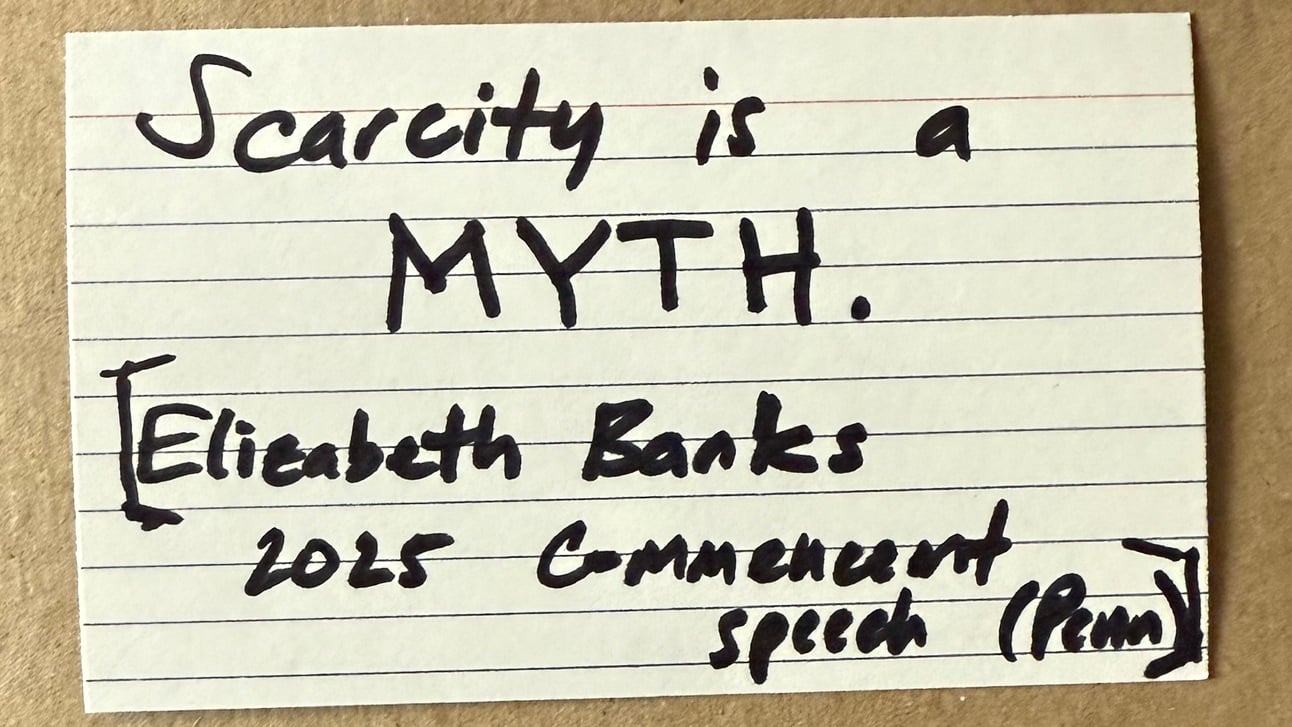 Scarcity is a
MYTH.
[Elizabeth Banks
2025 Commencement
speech (Penn)]